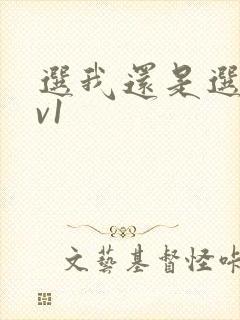 選我還是選
v1
文藝基督怪咔